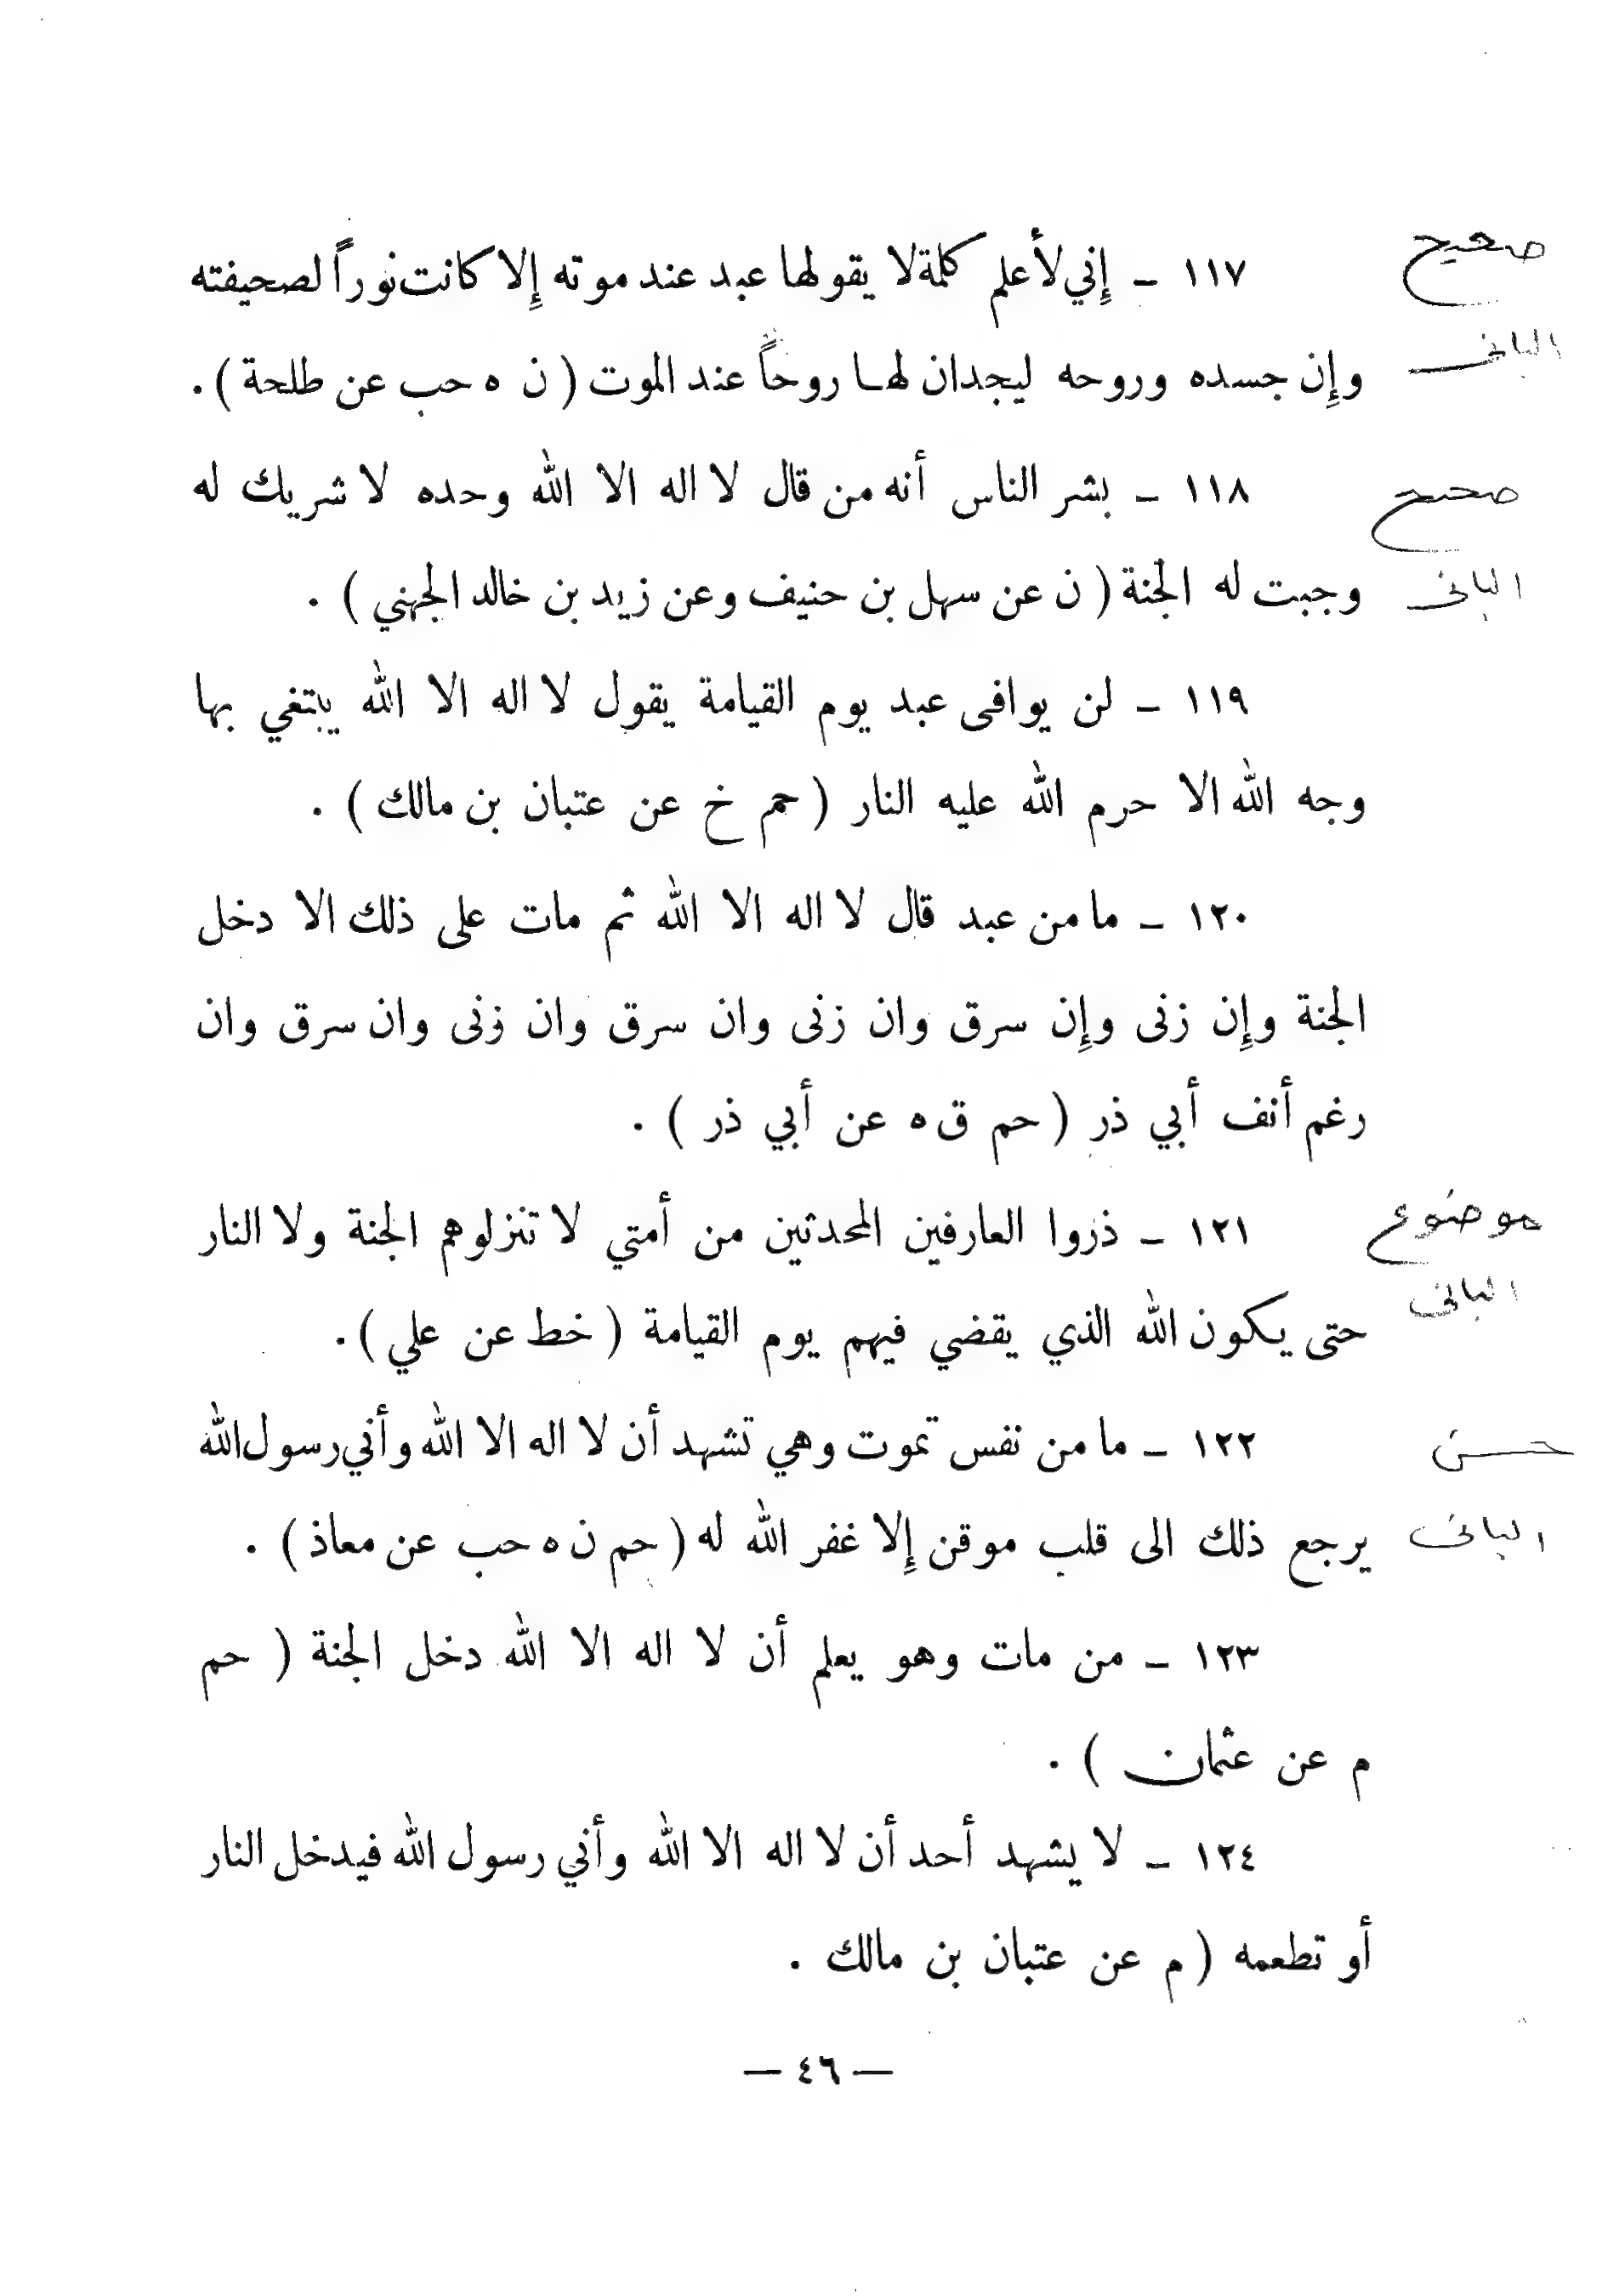 ١١٧ ـ إِني لأعلم كلمة لا يقولها عبد عند موته إِلا كانت نوراً لصحيفته
صحيح
وإِن جسده وروحه ليجدان لهـا روحاً عند الموت ( ن ه حب عن طلحة ) .
البانى
١١٨ ـ بشر الناس أنه من قال لا اله الا الله وحده لا شريك له
صحيح
وجبت له الجنة ( ن عن سهل بن حنيف وعن زيد بن خالد الجهني ) .
البانى
١١٩ ـ لن يوافى عبد يوم القيامة يقول لا اله الا الله يبتغي بها
وجه الله الا حرم الله عليه النار ( حم خ عن عتبان بن مالك ) .
١٢٠ ـ ما من عبد قال لا اله الا الله ثم مات على ذلك الا دخل
الجنة وإِن زنى وإِن سرق وان زنى وان سرق وان زنى وان سرق وان
رغم أنف أبي ذر ( حم ق ه عن أبي ذر ) .
١٢١ ـ ذروا العارفين المحدثين من أمتي لا تنزلوهم الجنة ولا النار
موضوع
حتى يكون الله الذي يقضي فيهم يوم القيامة ( خط عن علي ) .
البانى
١٢٢ ـ ما من نفس تموت وهي تشهد أن لا اله الا الله وأني رسول الله
حسن
يرجع ذلك الى قلب موقن إِلا غفر الله له ( حم ن ه حب عن معاذ ) .
البانى
١٢٣ ـ من مات وهو يعلم أن لا اله الا الله دخل الجنة ( حم
م عن عثمان ) .
١٢٤ ـ لا يشهد أحد أن لا اله الا الله وأني رسول الله فيدخل النار
أو تطعمه ( م عن عتبان بن مالك .
— ٤٦ —